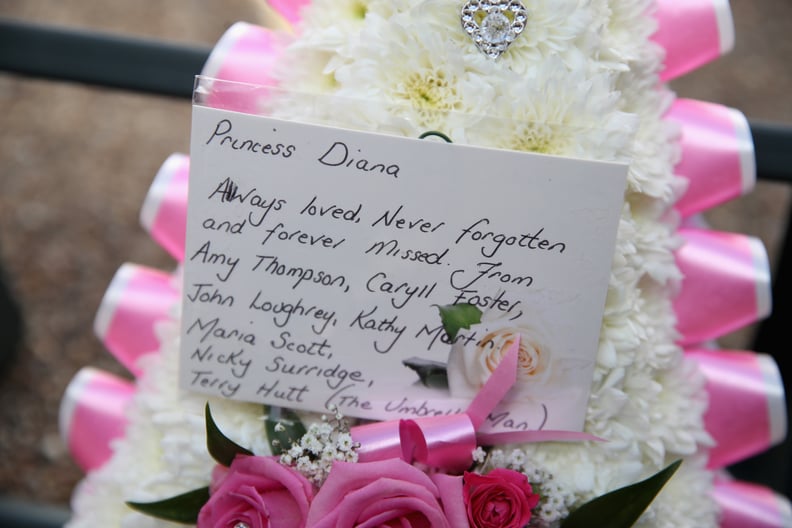 Princess Diana
Always loved, Never forgotten
and forever missed. From
Amy Thompson, Caryll Foster,
John Loughrey, Kathy Martin
Maria Scott,
Nicky Surridge,
Terry Hutt (The Umbrella Man)